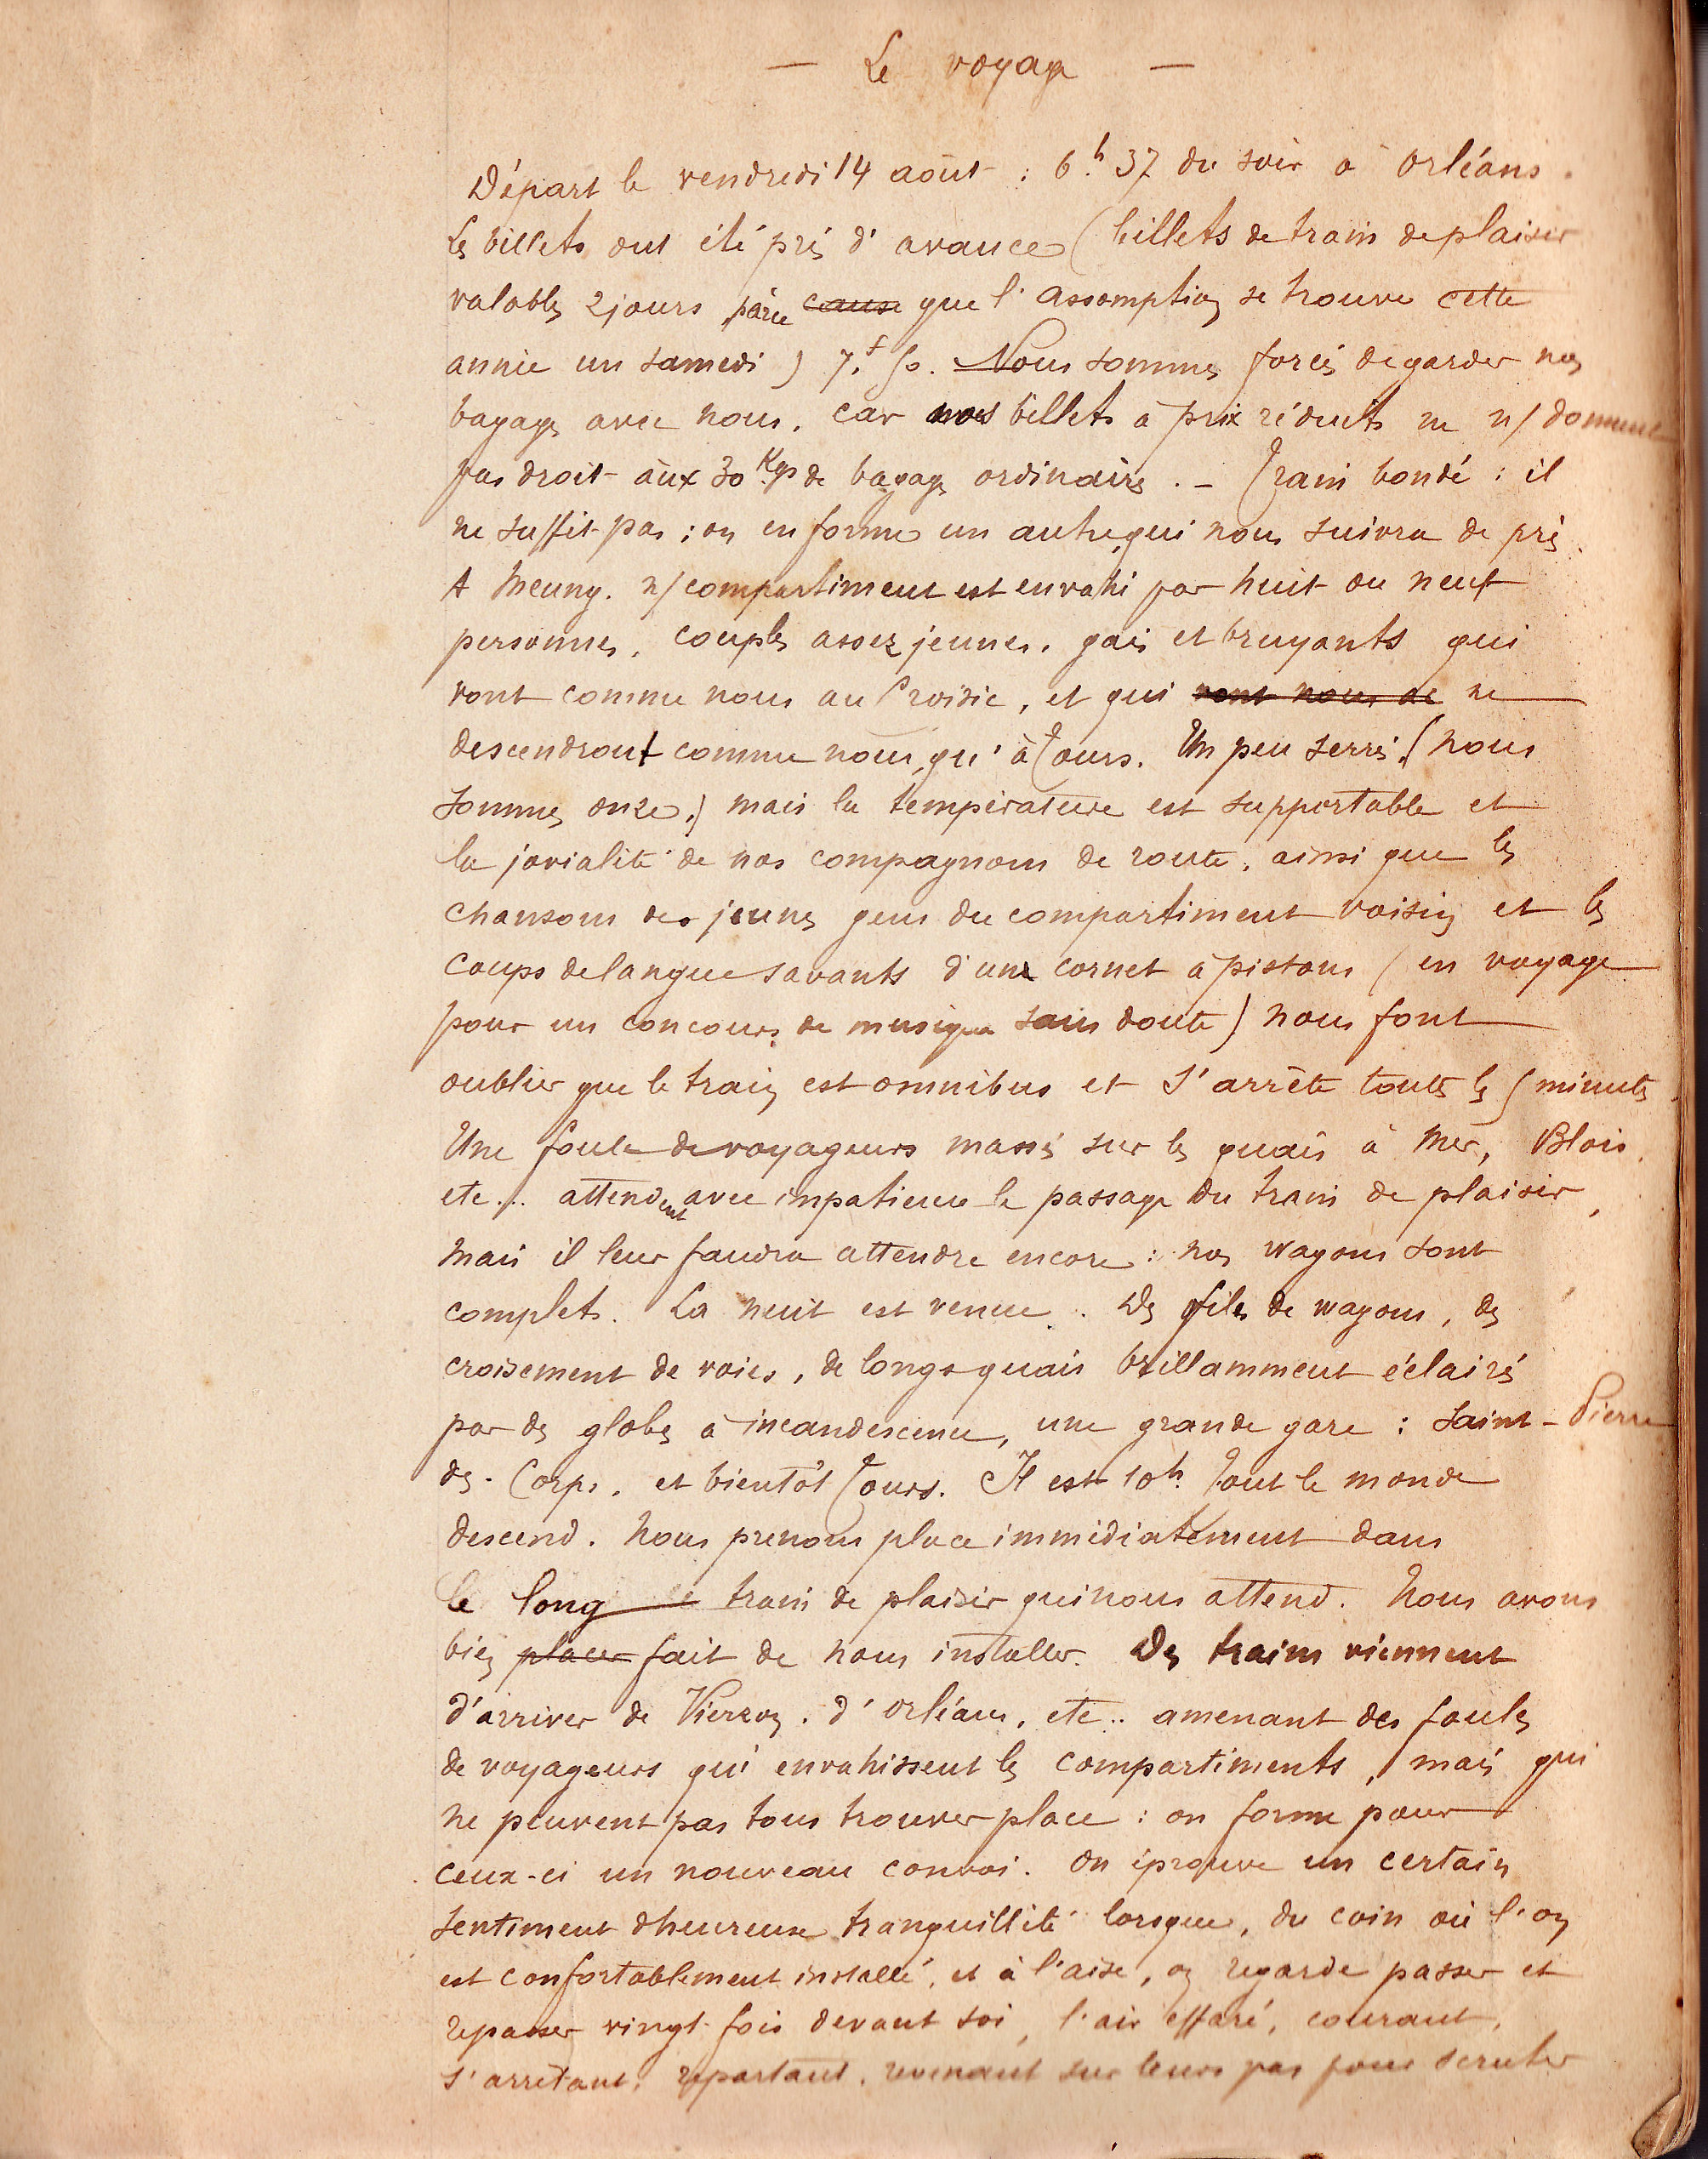 — Le voyage —
Départ le vendredi 14 août : 6h 37 du soir à Orléans.
Les billets ont été pris d'avance (billets de train de plaisir
valables 2 jours parce cause que l'Assomption se trouve cette
année un samedi) 7f,50. Nous sommes forcés de garder nos
bagages avec nous, car nos billets à prix réduits ne n/ donnent
pas droit aux 30 Kgs de bagages ordinaires. — Train bondé : il
ne suffit pas ; on en forme un autre qui nous suivra de près.
A Meung, n/ compartiment est envahi par huit ou neuf
personnes, couples assez jeunes, gais et bruyants qui
vont comme nous au Croisic, et qui vont nous de ne
descendront comme nous, qu'à Tours. Un peu serrés, (nous
sommes onze,) mais la température est supportable et
la jovialité de nos compagnons de route, ainsi que les
chansons des jeunes gens du compartiment voisin et les
coups de langue savants d'un cornet à pistons (en voyage
pour un concours de musique sans doute) nous font
oublier que le train est omnibus et s'arrête toutes les 5 minutes.
Une foule de voyageurs massés sur les quais à Mer, Blois,
etc... attendent avec impatience le passage du train de plaisir,
mais il leur faudra attendre encore : nos wagons sont
complets. La nuit est venue. Des files de wagons, des
croisement de voies, de longs quais brillamment éclairés
par des globes à incandescence, une grande gare : Saint-Pierre
des-Corps, et bientôt Tours. Il est 10h. Tout le monde
descend. Nous prenons place immédiatement dans
le long train de plaisir qui nous attend. Nous avons
bien placer fait de nous installer. Des trains viennent
d'arriver de Vierzon, d'Orléans, etc.. amenant des foules
de voyageurs qui envahissent les compartiments, mais qui
ne peuvent pas tous trouver place : on forme pour
ceux-ci un nouveau convoi. On éprouve un certain
sentiment d'heureuse tranquillité lorsque, du coin où l'on
est confortablement installé, et à l'aise, on regarde passer et
repasser vingt fois devant soi, l'air effaré, courant,
s'arrêtant, repartant, revenant sur leurs pas pour scruter